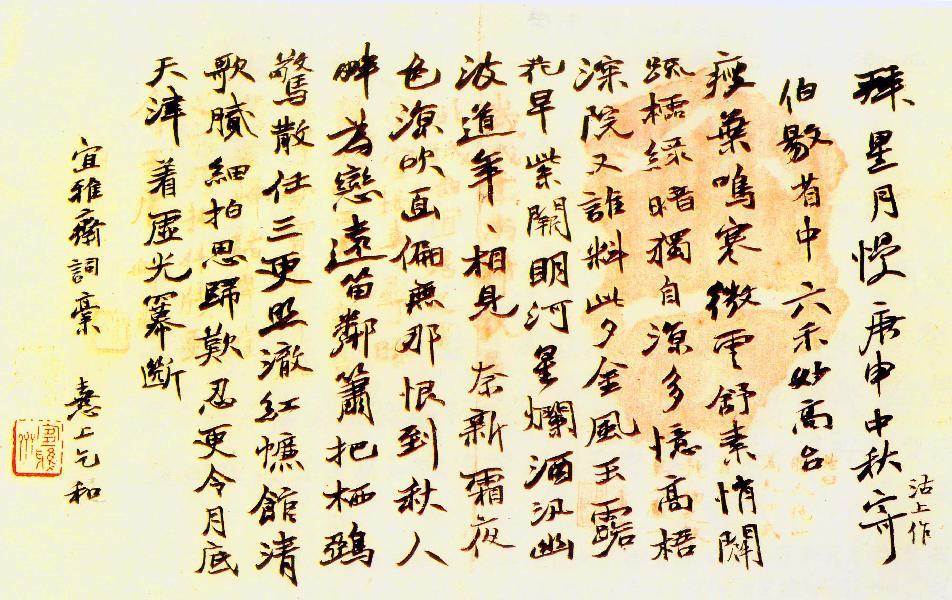 拜星月慢 庚申中秋寄
沽上作
伯敭省中 六禾妙高台
瘦葉鳴寒微雲舒素悄
疏櫺綠暗獨自涼多憶高梧
深院又誰料此夕金風玉露
花早 明河星爛酒汎幽
波道年、相見 奈新霜夜
色涼吹面偏無那恨到秋人
畔為戀遠笛鄰簫把栖鴉
驚散任三更照澈紅幨館清
歌膩細拍思歸歎忍更令月底
天津着虛光冪斷
宜雅齋詞稾 上乞和